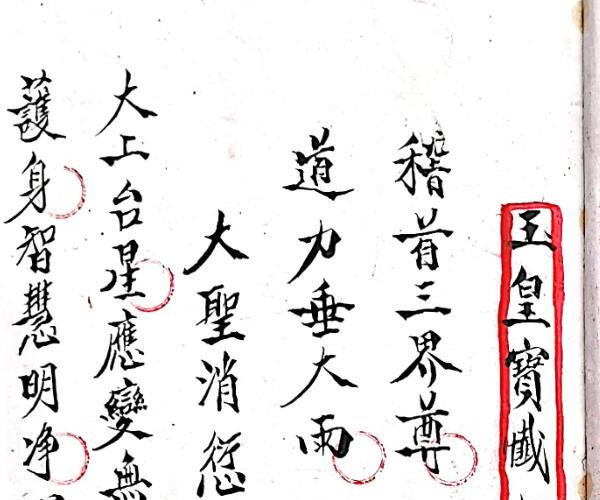 玉皇寳懴
稽首三界尊
道力垂大雨
大聖消愆
大上台星應變無
護身智慧明净